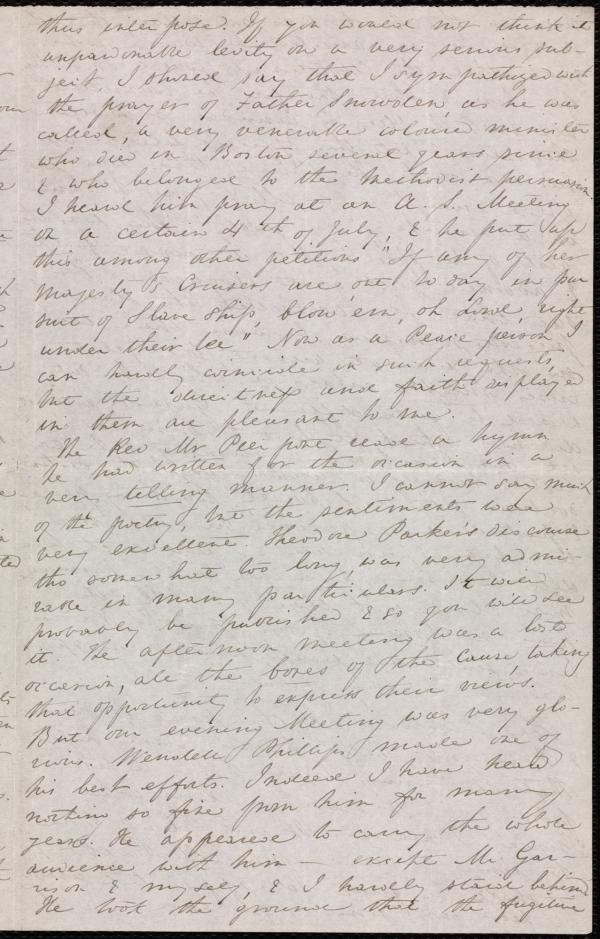 thus interpose. If you would not think it
unpardonable levity on a very serious sub-
ject, I should say that I sympathized with
the prayer of Father Snowden, as he was
called, a very venerable coloured minister
who died in Boston several years since
& who belonged to the Methodist persuasion.
I heard him pray at an A. S. Meeting
on a certain 4th of July, & he put up
this among other petitions "If any of her
majesty's Cruisers are out to day in pur
suit of Slave Ship, blow 'em, oh Lord, right
under their lee" Now as a Peace person I
can hardly coincide in such requests,
but the directness and faith displayed
in them are pleasant to me.
The Rev Mr Pierpont read a hymn
he had written for the occasion in a
very telling manner. I cannot say much
of the poetry, but the sentiments were
very excellent. Theodore Parker's discourse
tho somewhat too long, was very admi-
rable in many particulars. It will
probably be published & so you will see
it. The afternoon meeting was a lost
occasion, all the bores of the cause, taking
that opportunity to express their views.
But our evening Meeting was very glo-
rious. Wendell Phillips made one of
his best efforts. Indeed I have heard
nothing so fine from him for many
years. He appeared to carry the whole
audience with him – except Mr Gar-
rison & myself, & I hardly staid behind
He took the ground that the fugitive